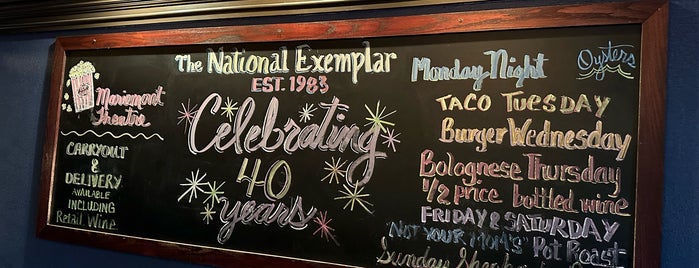 Mariemont
Theatre
CARRYOUT
&
DELIVERY
AVAILABLE
INCLUDING
Retail Wine
The National Exemplar
EST. 1983
Celebrating
40
years
Monday Night
Oysters
TACO TUESDAY
Burger Wednesday
Bolognese Thursday
1/2 price bottled wine
FRIDAY & SATURDAY
"NOT YOUR MOM'S" Pot Roast
Sunday